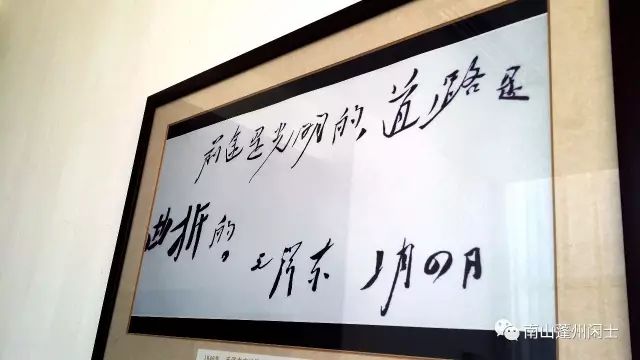 前途是光明的,道路是
曲折的。毛泽东 1月四日
南山蓬州闲士